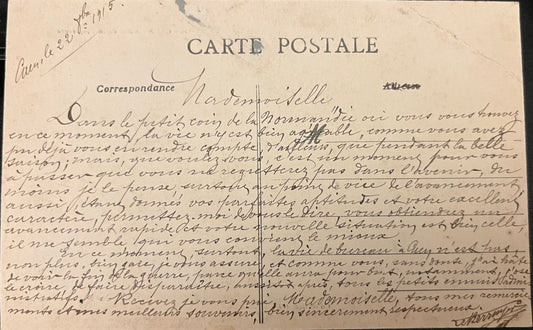 Caen, le 22 9bre 1915.
CARTE POSTALE
Correspondance
Mademoiselle
Dans le petit coin de la Normandie où vous vous trouvez
en ce moment, la vie n'y est bien agréable, comme vous avez
pu déjà vous en rendre compte d'ailleurs, que pendant la belle
saison; mais, que voulez-vous, c'est un moment pour vous
à passer que vous ne regretterez pas dans l'avenir, du
moins je le pense, surtout au point de vue de l'avancement
aussi, étant donnés vos parfaites aptitudes et votre excellent
caractère, permettez-moi de vous le dire, vous obtiendrez un
avancement rapide et votre nouvelle situation est bien celle,
il me semble, qui vous convient le mieux.
En ce moment, surtout, la vie de bureau à n'est pas
non plus, je vous assure, et comme vous, sans doute, j'ai hâte
de voir la fin de la guerre, parce qu'elle aura pour but, notamment, j'ose
le croire, de faire disparaître, aussitôt après, tous les petits ennuis
Recevez je vous prie, Mademoiselle, tous mes
et mes meilleurs souvenirs bien sincèrement respectueux